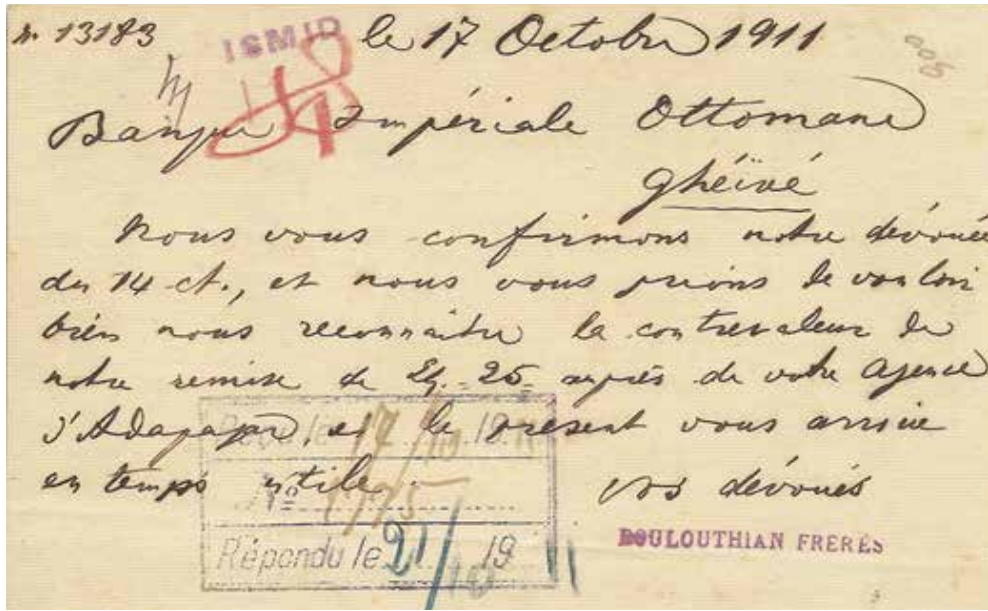 n. 13183 ISMID le 17 Octobre 1911
Banque Impériale Ottomane
Ghéivé
Nous vous confirmons notre dévouée
du 14 ct., et nous vous prions de vouloir
bien nous reconnaître la contrevaleur de
notre remise de 25 auprès de votre agence
d'Adapazar, si le présent vous arrive
en temps utile.
vos dévoués
BOULOUTHIAN FRERES
Reçu le 17/10 1911
No 1775
Répondu le 21/10 1911